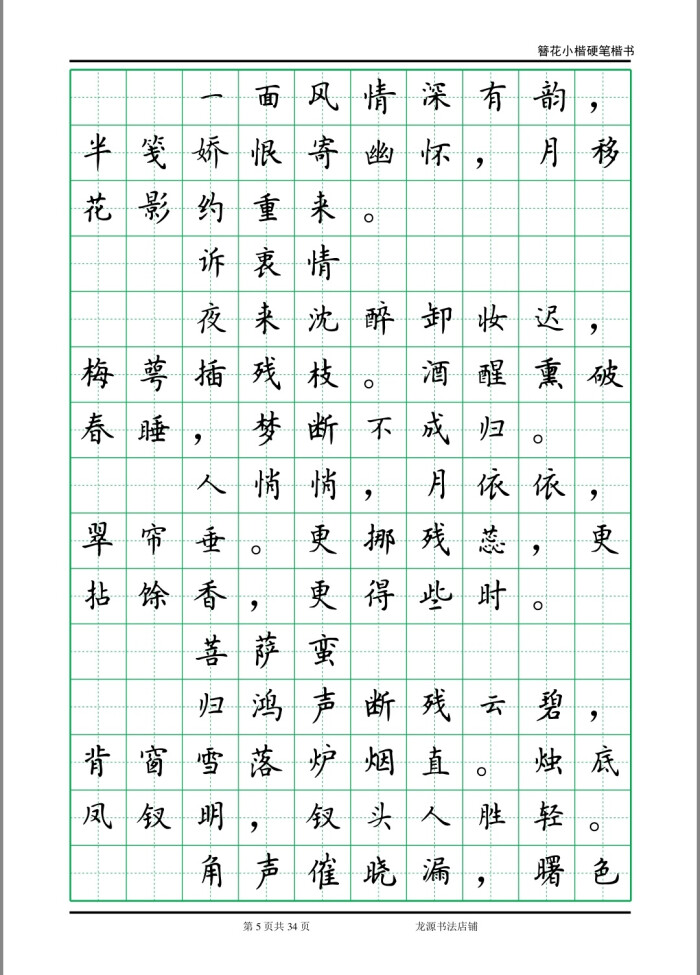 簪花小楷硬笔楷书
一面风情深有韵，
半笺娇恨寄幽怀，月移
花影约重来。
诉衷情
夜来沈醉卸妆迟，
梅萼插残枝。酒醒熏破
春睡，梦断不成归。
人悄悄，月依依，
翠帘垂。更挪残蕊，更
拈馀香，更得些时。
菩萨蛮
归鸿声断残云碧，
背窗雪落炉烟直。烛底
凤钗明，钗头人胜轻。
角声催晓漏，曙色
第 5 页共 34 页 龙源书法店铺